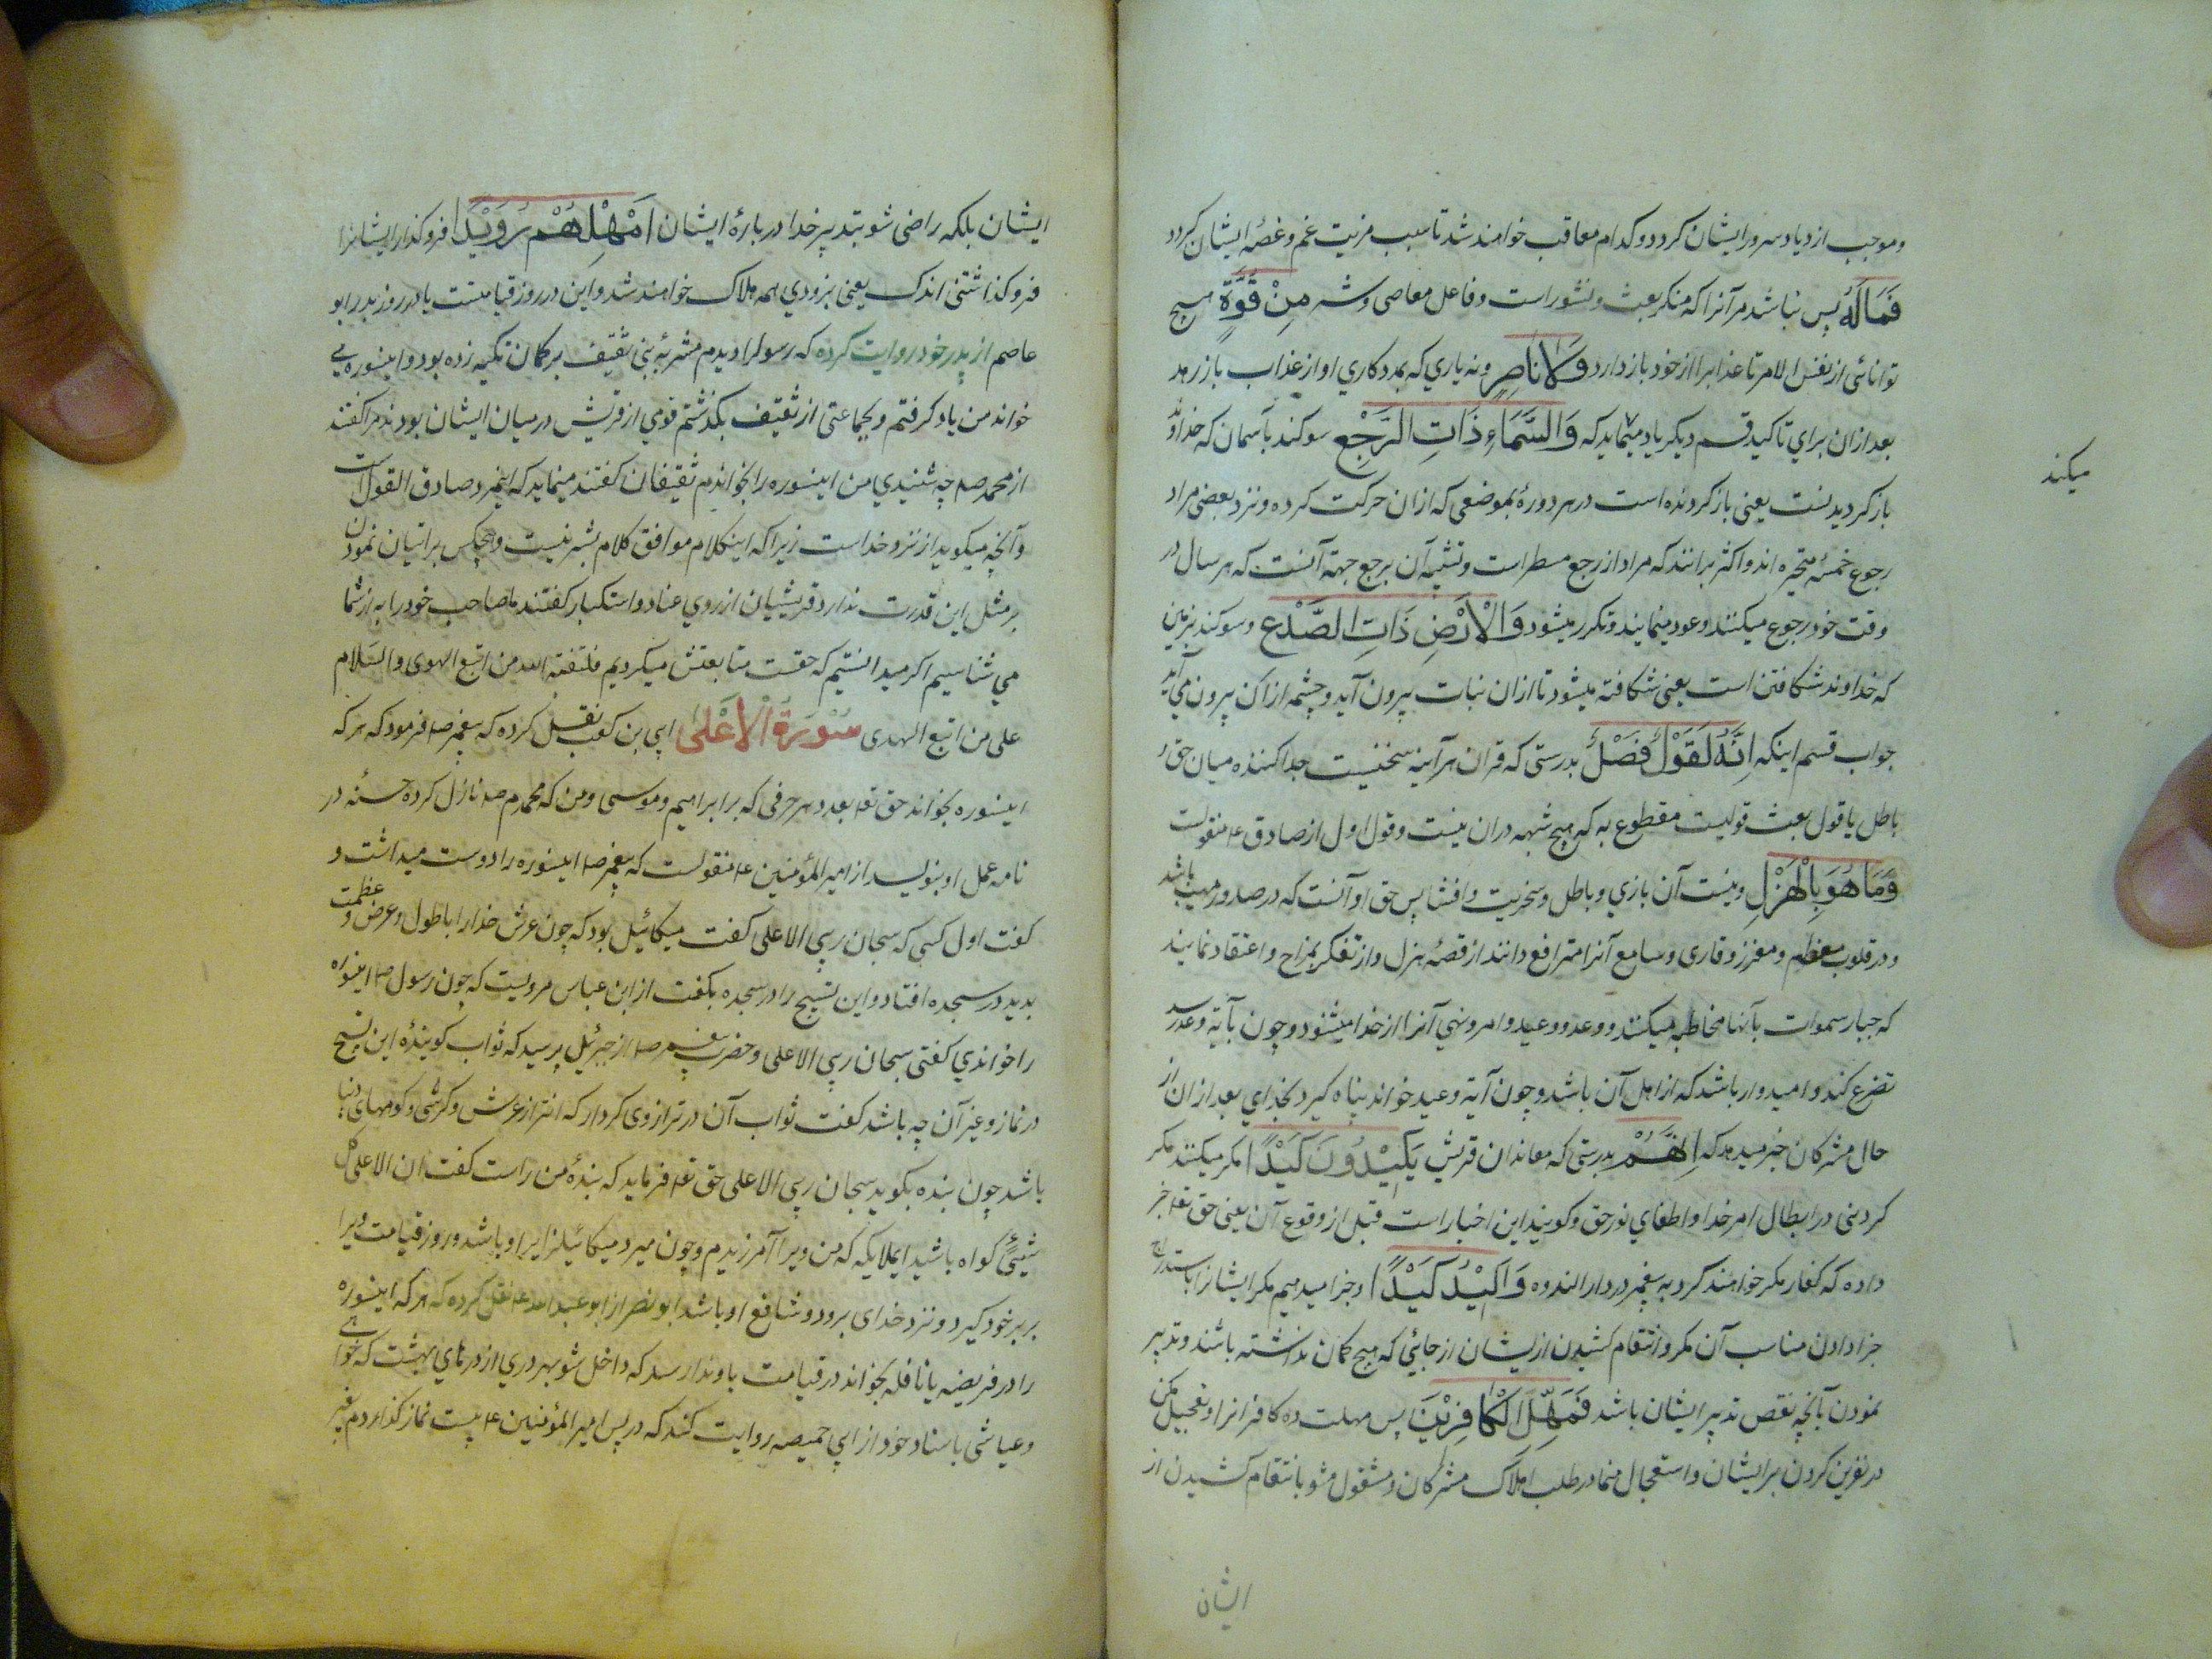 و موجب ازدیاد سرور ایشان کردد و کدام معاقب خواهند شد تا سبب مزیت غم و غصهٔ ایشان کردد
فَمَا لَهُ پس نباشد مر آنرا که منکر بعث و نشور است و فاعل معاصی و شر مِنْ قُوَّةٍ هیچ
توانائی از نفس الامر تا عذابرا از خود باز دارد وَلَا نَاصِرٍ و نه یاري که بمددکاري او از عذاب باز رهد
بعد ازان براي تاکید قسم دیکر یاد مینماید که وَالسَّمَاءِ ذَاتِ الرَّجْعِ سوکند بآسمان که خداوند
باز کردیدنست یعنی باز کردنده است در هر دورهٔ بموضعی که ازان حرکت کرده و نزد بعضی مراد
رجوع خمسهٔ متحیره اند و اکثر برانند که مراد از رجع مطر است و تسمیهٔ آن برجع جهة آنست که هر سال در
وقت خود رجوع میکنند و عود مینمایند و مکرر میشود وَالْأَرْضِ ذَاتِ الصَّدْعِ و سوکند بزمین
که خداوند شکافتن است یعنی شکافته میشود تا ازان نبات بیرون آید و چشمه از ان بیرون می آید
جواب قسم اینکه اِنَّهُ لَقَوْلٌ فَصْلٌ بدرستی که قران هر آینه سخنیست جدا کننده میان حق و
باطل یا قول بعث قولیست مقطوع به که هیچ شبهه دران نیست و قول اول از صادق ع منقولست
وَمَا هُوَ بِالْهَزْلِ و نیست آن بازي و باطل و سخریت و افشا پس حق او آنست که در صدور مهیب باشد
و در قلوب معظم و معزز و قاری و سامع آنرا مترافع دانند از قصهٔ هزل و از تفکر بمزاح و اعتقاد نمایند
که جبار سموات بآنها مخاطبه میکند و وعد و وعید و امر و نهي آنرا از خدا میشنود و چون بآیهٔ وعد رسد
تضرع کند و امیدوار باشد که از اهل آن باشد و چون آیهٔ وعید خواند پناه کیرد بخداي بعد ازان از
حال مشرکان خبر میدهد که اِنَّهُمْ بدرستی که معاندان قریش یَکِیْدُونَ کَیْدًا مکر میکنند مکر
کردنی در ابطال امر خدا و اطفاي نور حق و کویند این اخبار است قبل از وقوع آن یعنی حق تعا خبر
داده که کفار مکر خواهند کرد به پیغمبر در دار الندوه وَاَکِیْدُ کَیْدًا و جزا میدهیم مکر ایشانرا باستدراج
جزا دادن مناسب آن مکر و انتقام کشیدن از یشان از جائي که هیچ کمان نداشته باشند و تدبیر
نمودن بآنچه نقص تدبیر ایشان باشد فَمَهِّلِ الْکَافِرِیْنَ پس مهلت ده کافرانرا و تعجیل مکن
در نفرین کردن بر ایشان و استعجال منما در طلب اهلاک مشرکان و مشغول مشو بانتقام کشیدن از
ایشان
میکند
ایشان بلکه راضی شو بتدبیر خدا در بارهٔ ایشان اَمْهِلْهُمْ رُوَیْدًا فرو کذار ایشانرا
فرو کذاشتنی اندک یعنی بزودي همه هلاک خواهند شد و این در روز قیامتست یا در روز بدر ابو
عاصم از پدر خود روایت کرده که رسولرا دیدم مشربهٔ بنی ثقیف بر کمان تکیه زده بود و اینسوره مي
خواند من یاد کرفتم و بجماعتی از ثقیف بکذشتم قومي از قریش در میان ایشان بودند مرا کفتند
از محمد ص چه شنیدي من اینسوره را بخواندم ثقیفان کفتند مینماید که اینمرد صادق القول است
و آنچه میکوید از نزد خداست زیرا که اینکلام موافق کلام بشر نیست و هیچکس بر اتیان نمودن
بر مثل این قدرت ندارد قریشیان از روي عناد و استکبار کفتند ما صاحب خود را به از شما
مي شناسیم اکر میدانستیم که حقست متابعتش میکردیم فلعنة الله من اتبع الهوی والسلام
علی من اتبع الهدی سُوْرَةُ الْاَعْلٰی ابي بن کعب نقل کرده که پیغمبر ص فرمود که هر که
اینسوره بخواند حق تعا بعدد هر حرفی که بر ابراهیم و موسی و من که محمدم ص نازل کرده حسنه در
نامه عمل او بنویسد از امیر المؤمنین ع منقولست که پیغمبر ص اینسوره را دوست میداشت و
کفت اول کسی که سبحان ربي الاعلی کفت میکائیل بود که چون عرش خدا را با طول و عرض و عظمت
بدید در سجده افتاد و این تسبیح را در سجده بکفت از ابن عباس مرویست که چون رسول ص اینسوره
را خواندي کفتی سبحان ربي الاعلی و حضرت پیغمبر ص از جبرئیل پرسید که ثواب کویندهٔ این تسبیح
در نماز و غیر آن چه باشد کفت ثواب آن در ترازوی کردار که انتر از عرش و کرسی و کوههای دنیا
باشد چون بنده بکوید سبحان ربي الاعلی حق تعا فرماید که بندهٔ من راست کفت انا الاعلی کل
شیئ کواه باشید ایملایکه که من ویرا آمرزیدم و چون میرد میکائیل زایر او باشد و روز قیامت ویرا
بر پر خود کیرد و نزد خدای برود و شافع او باشد ابونصر از ابو عبد الله ع نقل کرده که هر که اینسوره
را در فریضه یا نافله بخواند در قیامت باو ندا رسد که داخل شو بهر دري از درهاي بهشت که خواهی
و عیاشی باسناد خود از ابي حمیصه روایت کند که در پس امیر المؤمنین ع بیست نماز کذاردم غیر